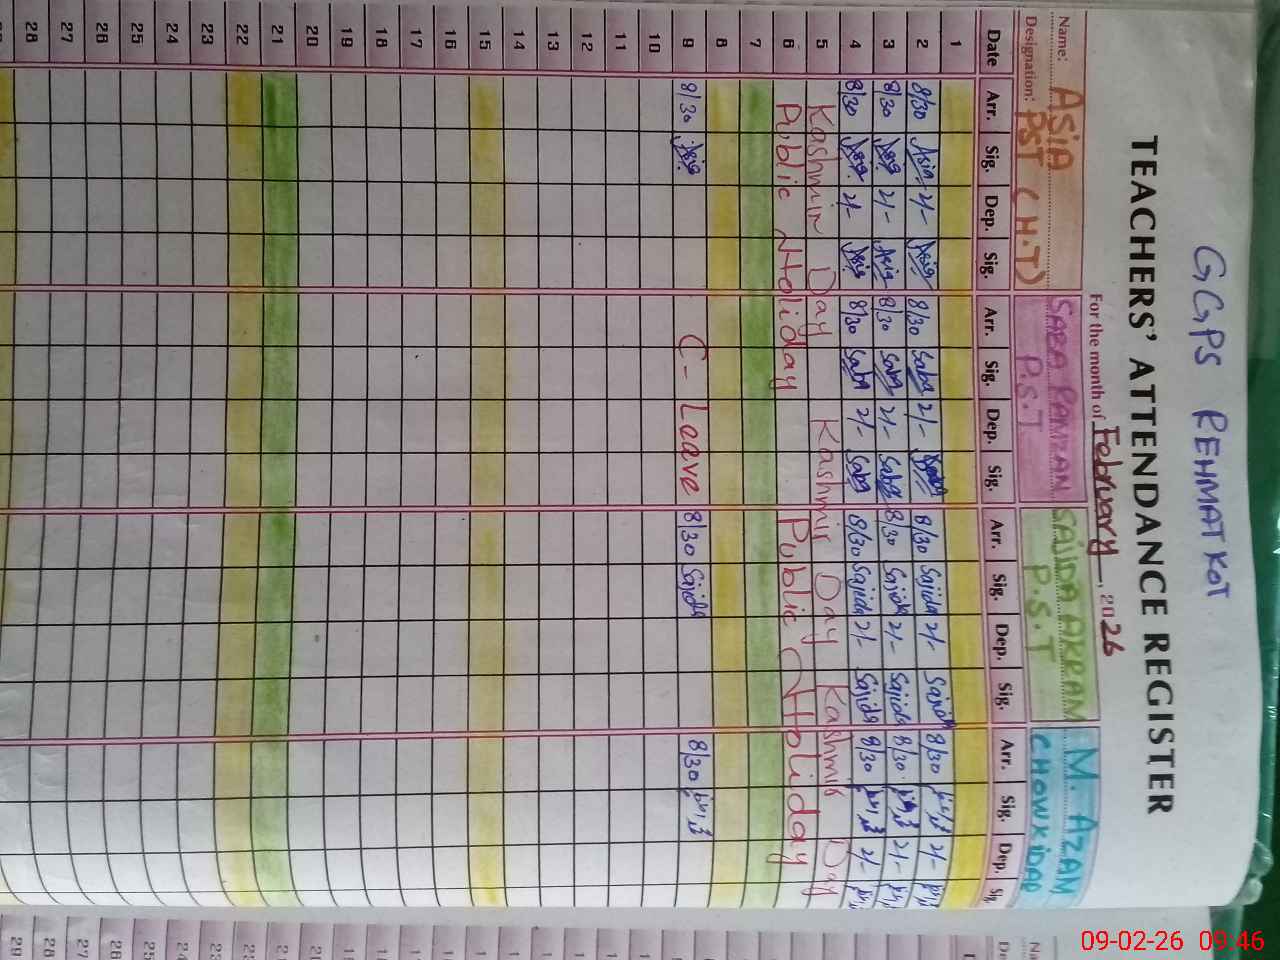 GGPS REHMAT KOT
TEACHERS' ATTENDANCE REGISTER
For the month of February, 2026
Name: ASIA SABA RAMZAN SAJIDA AKRAM M. AZAM
Designation: PST (H.T) P.S.T P.S.T CHOWKIDAR
Date Arr. Sig. Dep. Sig. Arr. Sig. Dep. Sig. Arr. Sig. Dep. Sig. Arr. Sig. Dep. Sig.
1
2 8/30 Asia 2/- Asia 8/30 Saba 2/- 8/30 Sajida 2/- Sajida 8/30 2/-
3 8/30 Asia 2/- Asia 8/30 Saba 2/- Saba 8/30 Sajida 2/- Sajida 8/30 2/-
4 8/30 Asia 2/- Asia 8/30 Saba 2/- Saba 8/30 Sajida 2/- Sajida 8/30 2/-
5 Kashmir Day Kashmir Day Kashmir Day
6 Public Holiday Public Holiday
7
8
9 8/30 Asia C- Leave 8/30 Sajida 8/30
10
11
12
13
14
15
16
17
18
19
20
21
22
23
24
25
26
27
28
09-02-26 09:46